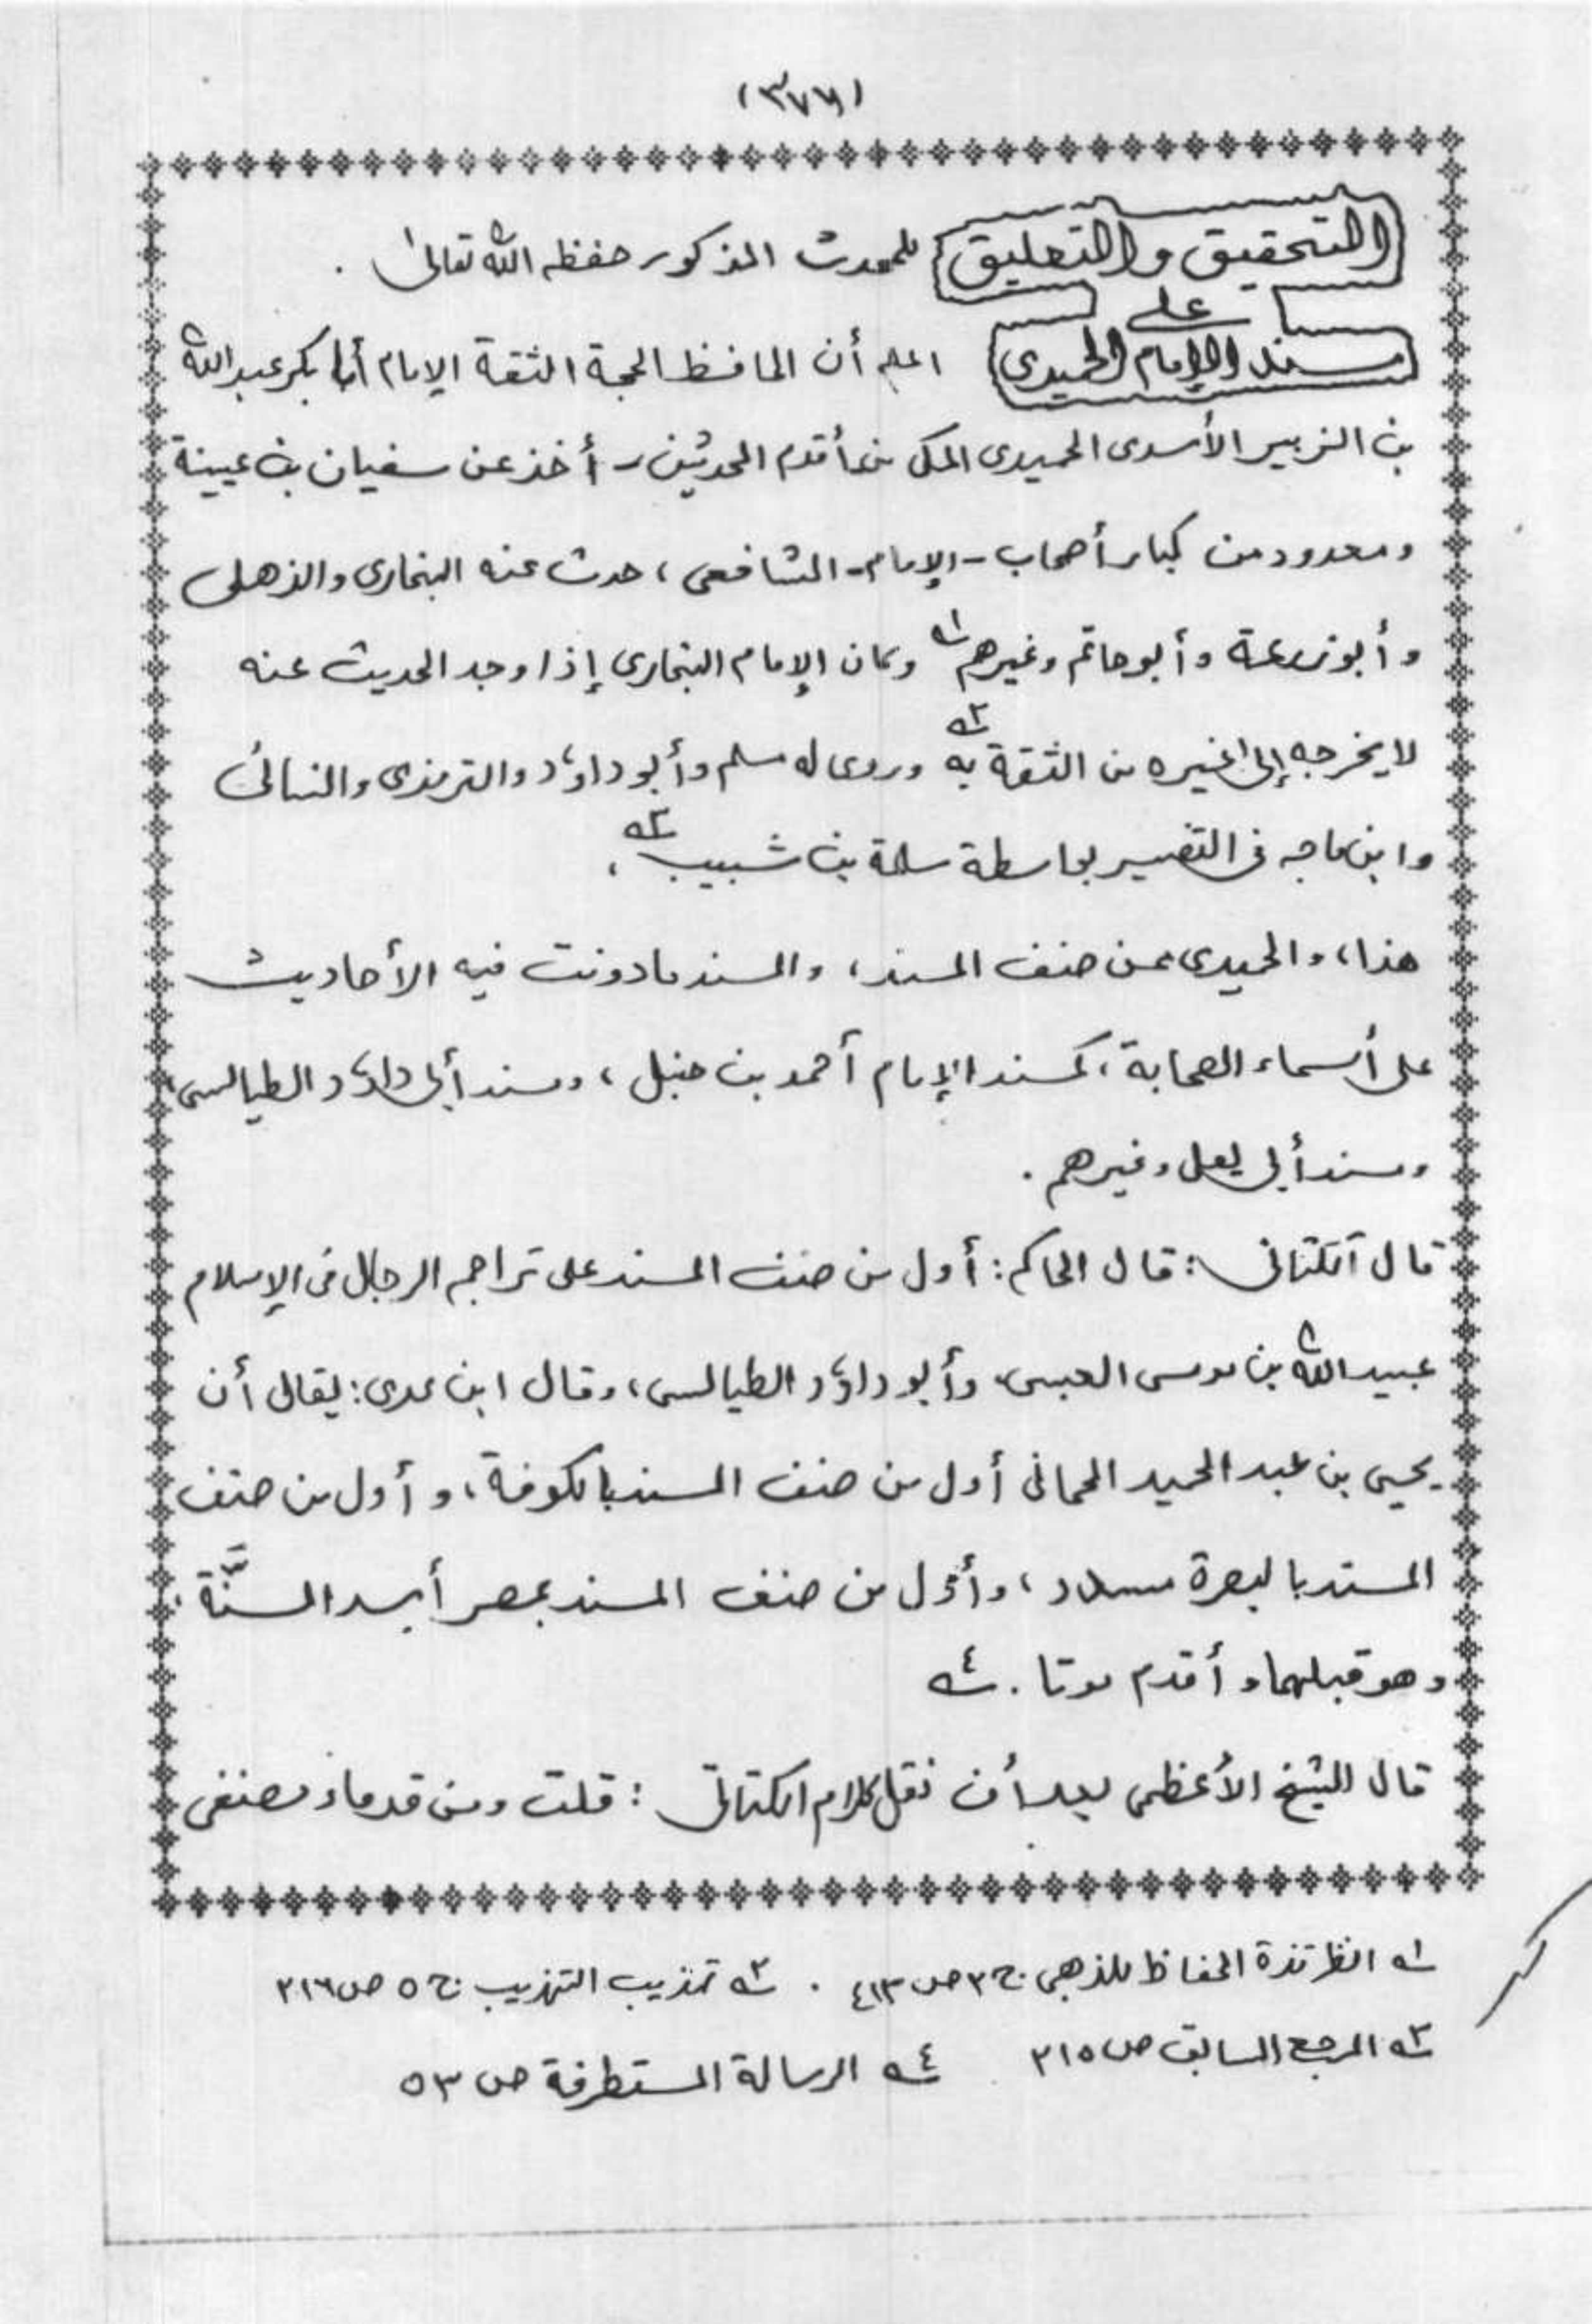 (٣٧٧)
التحقيق والتعليق للمحدث المذكور حفظه الله تعالىٰ .
على
مسند الإمام الحميدى اعلم أن الحافظ الحجة الثقة الإمام أبا بكر عبد الله
بن الزبير الأسدى الحميدى المكى من أقدم المحدثين - أخذ عن سفيان بن عيينة
ومعدود من كبار أصحاب - الإمام - الشافعى ، حدث عنه البخارى والذهلى
وأبو زرعة وأبو حاتم وغيرهم ١ وكان الإمام البخارى إذا وجد الحديث عنه
لا يخرجه إلى غيره من الثقة به ٢ وروى له مسلم وأبو داؤد والترمذى والنسائى
وابن ماجه فى التفسير بواسطة سلمة بن شبيب ٣ ،
هذا ، والحميدى ممن صنف المسند ، والمسند ما دونت فيه الأحاديث
على أسماء الصحابة ، كمسند الإمام أحمد بن حنبل ، ومسند أبى داؤد الطيالسى ،
ومسند أبى يعلى وغيرهم .
قال الكتانى : قال الحاكم : أول من صنف المسند على تراجم الرجال فى الإسلام
عبيد الله بن موسى العبسى وأبو داؤد الطيالسى ، وقال ابن عدى : يقال أن
يحيى بن عبد الحميد الحمانى أول من صنف المسند بالكوفة ، وأول من صنف
المسند بالبصرة مسدد ، وأوّل من صنف المسند بمصر أسد السنَّة ،
وهو قبلهما وأقدم موتا . ٤
قال الشيخ الأعظمى بعد أن نقل كلام الكتانى : قلت ومن قدماء مصنفى
١ انظر تذكرة الحفاظ للذهبى ج ٢ ص ٤١٣ . ٢ تهذيب التهذيب ج ٥ ص ٢١٦
٣ المرجع السابق ص ٢١٥ ٤ الرسالة المستطرفة ص ٥٣